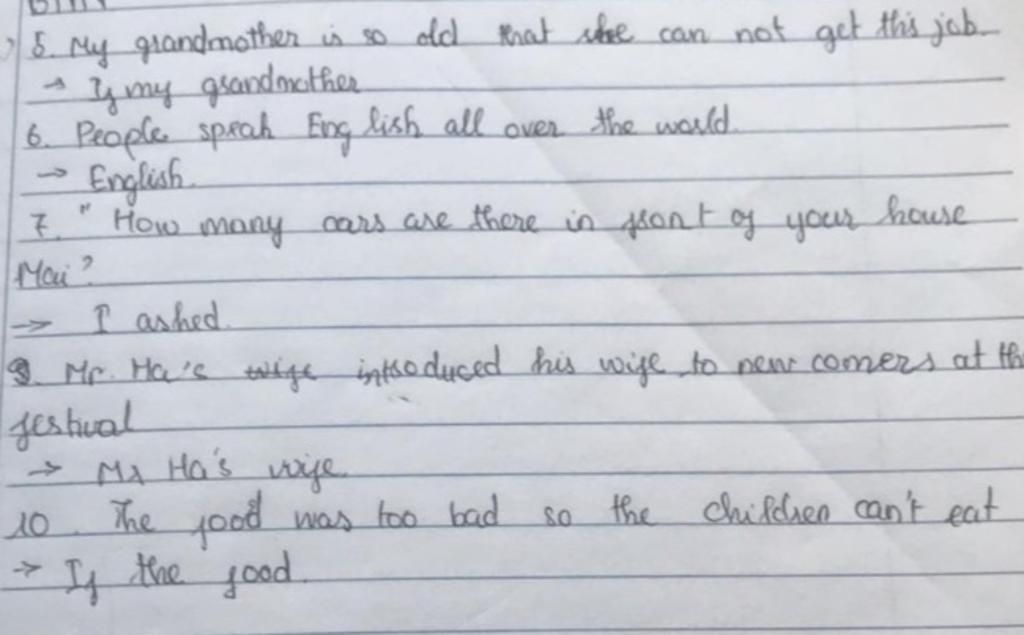 5. My grandmother is so old that she can not get this job
→ If my grandmother
6. People speak English all over the world.
→ English.
7. " How many cars are there in front of your house
Mai?
→ I asked.
9. Mr. Ha's wife introduced his wife to new comers at th
festival
→ Mr Ha's wife
10. The food was too bad so the children can't eat
→ If the food.